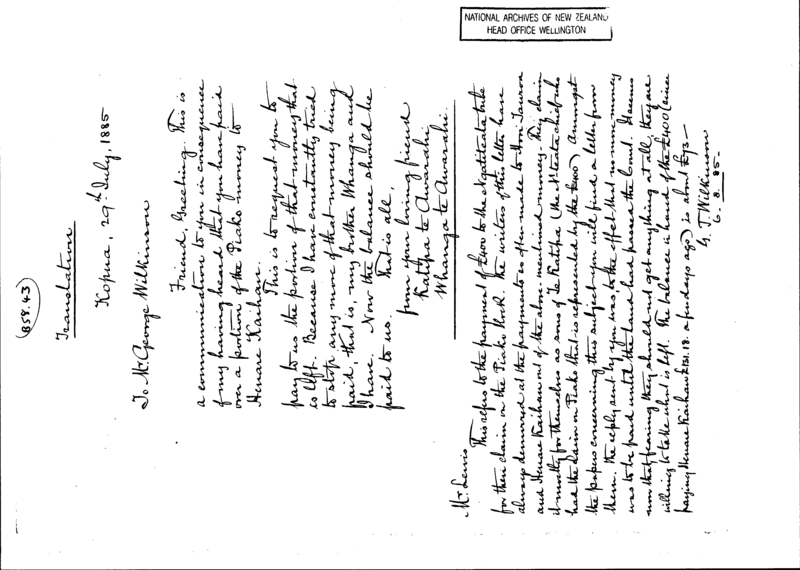 NATIONAL ARCHIVES OF NEW ZEALAND
HEAD OFFICE WELLINGTON
(B58.43)
Translation
Kopua, 29th July, 1885
To Mr George Wilkinson
Friend, Greeting. This is
a communication to you in consequence
of my having heard that you have paid
over a portion of the Piako money to
Henare Kaihau.
This is to request you to
pay to us the portion of that money that
is left. Because I have constantly tried
to stop any more of that money being
paid, that is, my brother Whanga and
I have. Now the balance should be
paid to us. That is all,
from your loving friend
Katipa te Awarahi
Whanga te Awarahi.
Mr Lewis
This refers to the payment of £400 to the tribe
for their claim on the Piako block. The writers of this letter have
always demurred at the payments so often made to Hori Tauroa
and Henare Kaihau out of the above mentioned money. They claim
it mostly for themselves as sons of Te Katipa (the chief who
had the claim on Piako that is represented by the £400) Amongst
the papers concerning this subject you will find a letter from
them. the reply sent by you was to the effect that no more money
was to be paid until the land had passed the Court. It seems
now that fearing they should not get anything at all, they are
willing to take what is left. The balance in hand of the £400 (since
paying Henare Kaihau a few days ago) is about £73—
G. T. Wilkinson
6. 8. 85.